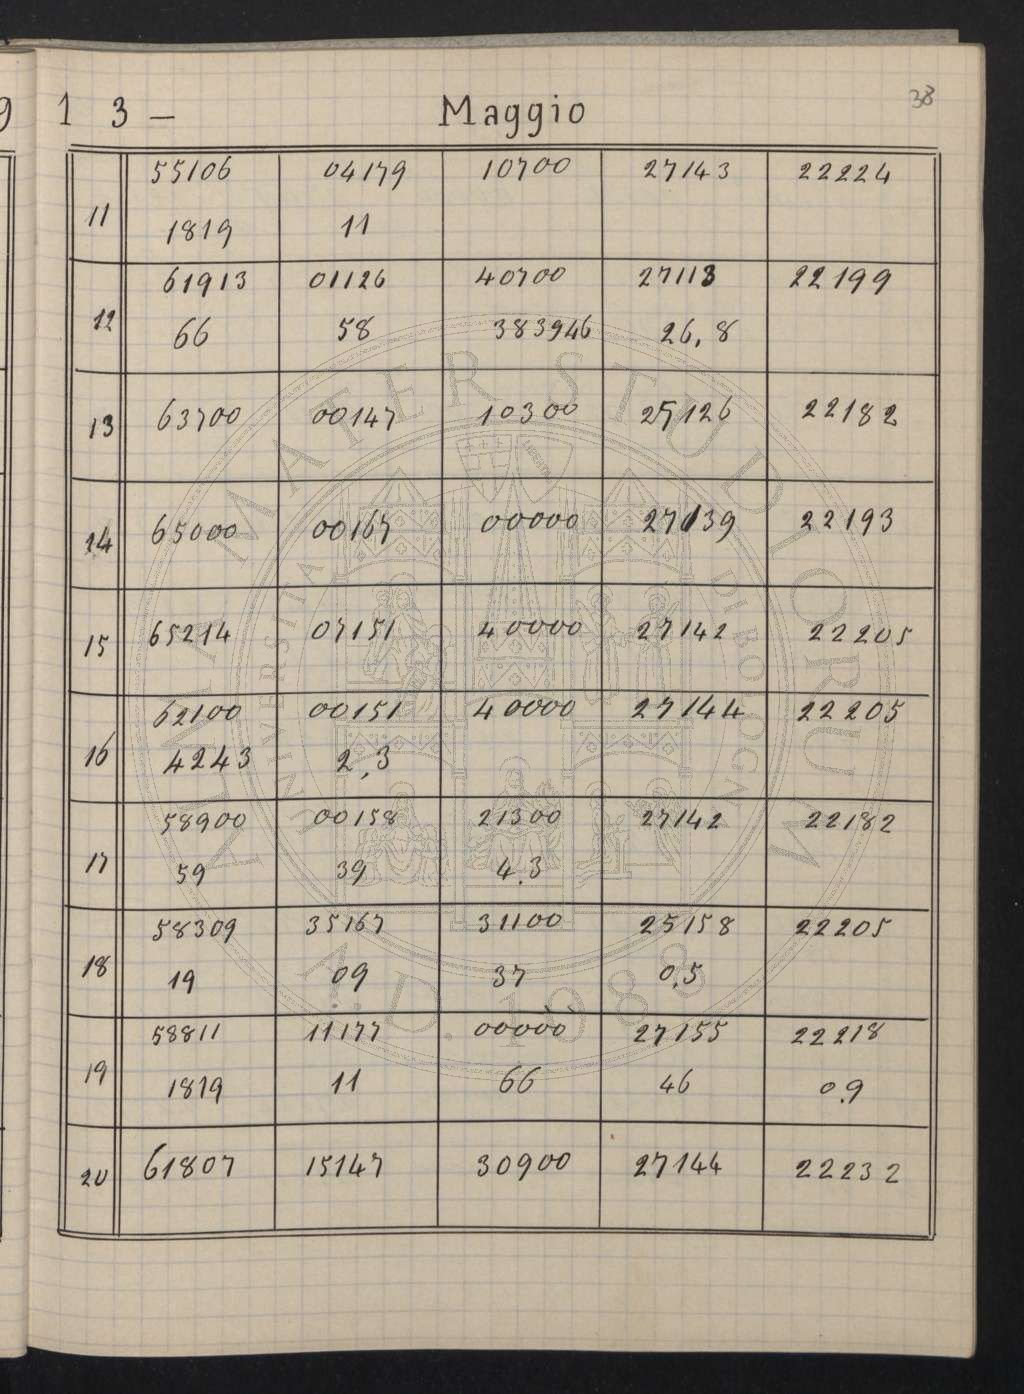 9 1 3 – Maggio 38
11 55106 04179 10700 27143 22224
1819 11
12 61913 01126 40700 27113 22199
66 58 383946 26,8
13 63700 00147 10300 27126 22182
14 65000 00167 00000 27139 22193
15 65214 07151 40000 27142 22205
16 62100 00151 40000 27144 22205
4243 2,3
17 58900 00158 21300 27142 22182
59 39 4,3
18 58309 35167 31100 25158 22205
19 09 37 0,5
19 58811 11177 00000 27155 22218
1819 11 66 46 0,9
20 61807 15147 30900 27144 22232
ALMA MATER STUDIORUM
A.D. 1088